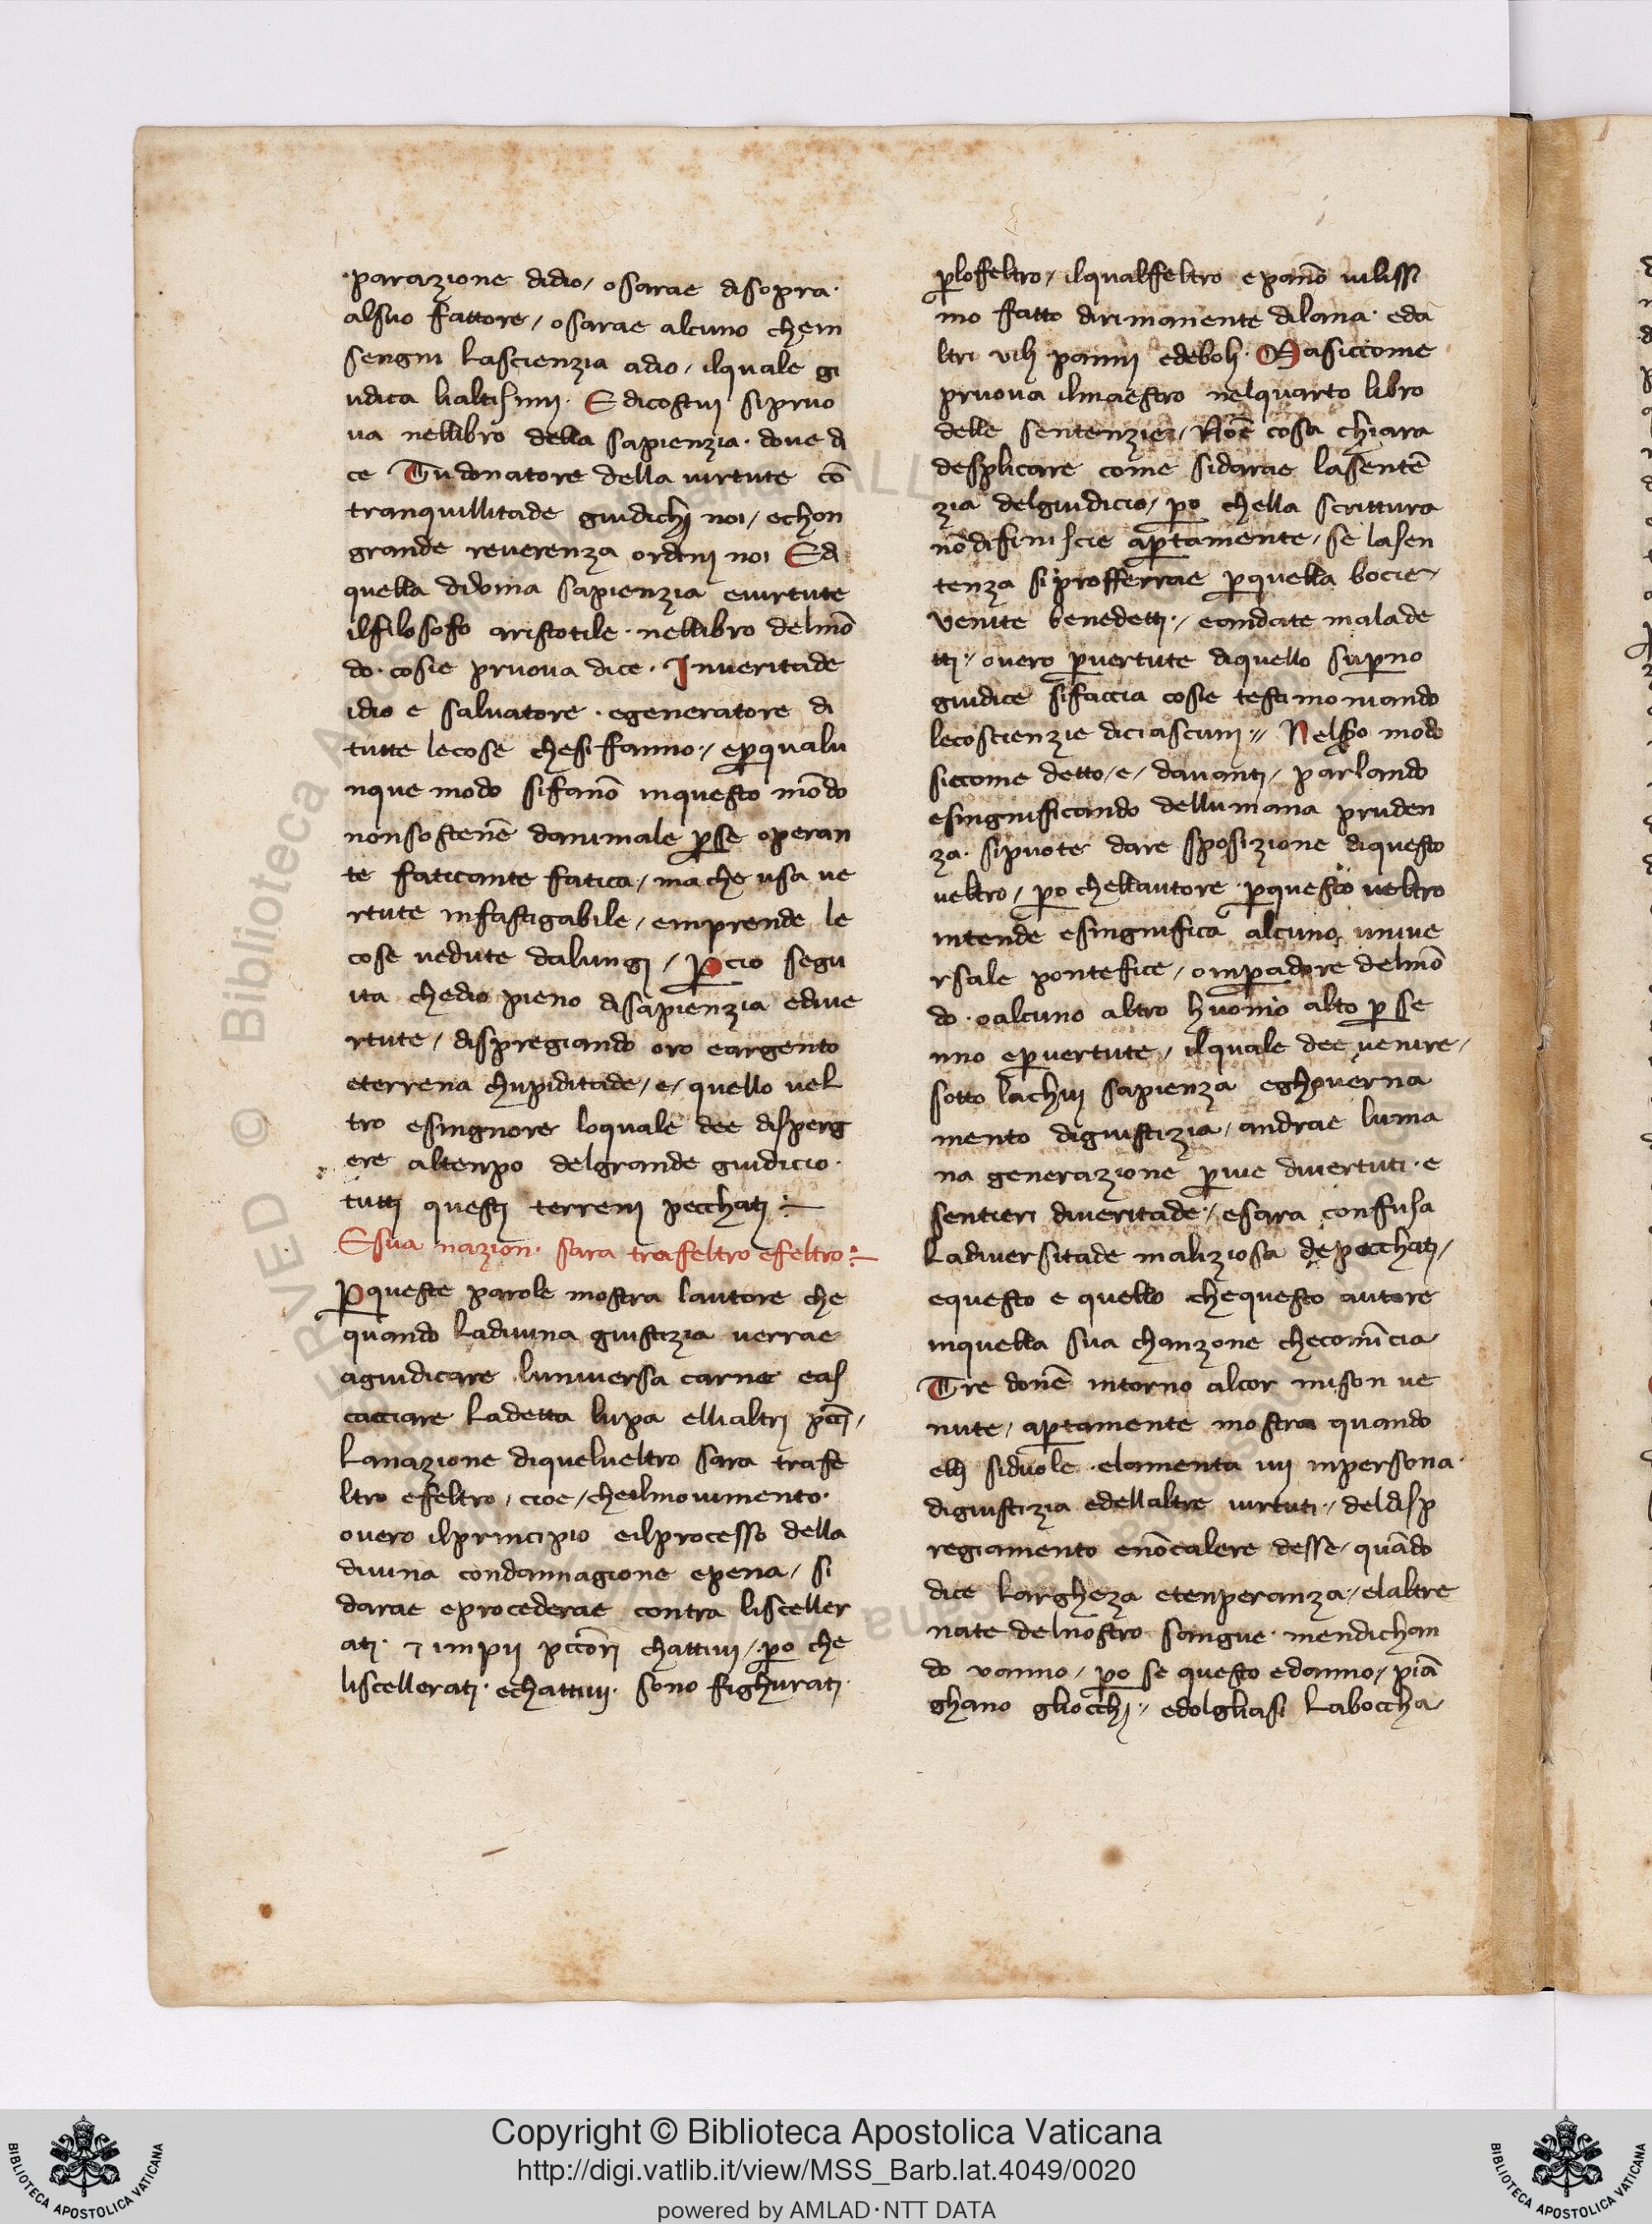 parazione didio / osarae disopra ·
alsuo fattore / osarae alcuno chem
sengni lascienzia adio / ilquale gi
udica lialtissimi · E dicostui sipruo
ua nellibro della sapienzia · doue di
ce Tu donatore della uirtute cō
tranquillitade giudichi noi / echon
grande reuerenza ordini noi E di
quella diuina sapienzia euirtute
ilfilosofo aristotile · nellibro delmō
do · cosie pruoua dice · Inueritade
idio e saluatore · egeneratore di
tutte lecose chesifanno / eꝑqualu
nque modo sifanō inquesto mōdo
nonsostenēdanimale ꝑse operan
te faticante fatica / ma che usa ue
rtute infastigabile / emprende le
cose uedute dalungi / Ꝑcio segu
ita chedio pieno disapienzia ediue
rtute / dispregiando oro eargento
eterrena chupiditade / e / quello uel
tro esingnore loquale dee disperg
ere altenpo delgrande giudicio ·
tutti questi terreni pecchati
E sua nazion · sara trafeltro efeltro
Ꝑqueste parole mostra lautore che
quando ladiuina giustizia uerrae
agiudicare luniuersa carne eas
cacciare ladetta lupa elli altri pcc̄i /
lanazione diquelueltro sara trafe
ltro efeltro / cioe / cheilmouimento ·
ouero ilprincipio eilprocesso della
diuina condannagione epena / si
darae eprocederae contra lisceller
ati · ⁊ impii pcc̄ori chattiui / ꝑo che
liscellerati · echattiui · sono fighurati ·
ꝑloffeltro / ilqualffeltro epanō uilissi
mo fatto dirimanente dilana · eda
ltri vili panni edeboli · Masiccome
pruoua ilmaestro nelquarto libro
delle sentenzie / Nōe cosa chiara
desplicare come sidarae lasentē
zia delgiudicio / ꝑo chella scrittura
nō difiniscie aꝑtamente / se lasen
tenza siprofferrae ꝑquella bocie /
venite benedetti / eandate malade
tti / ouero ꝑuertute diquello suꝑno
giudice sifaccia cosie testimoniando
lecoscienzie diciascuni // Nel modo
siccome detto / e / dauanti / parlando
esingnificando dellumana pruden
za · sipuote dare sposizione diquesto
ueltro / ꝑo chellautore ꝑquesto ueltro
intende esingnifica alcuno uniue
rsale pontefice / omꝑadore delmō
do · oalcuno altro huomo alto ꝑ se
nno eꝑuertute / ilquale dee uenire /
sotto lachui sapienza eghouerna
mento digiustizia / andrae luma
na generazione ꝑuie diuertuti · e
sentieri diueritade / esara confusa
ladiuersitade maliziosa de pecchati /
equesto e quello chequesto autore
inquella sua chanzone checomīcia
Tre donē intorno alcor mison ue
nute / aꝑtamente mostra quando
elli siduole · elamenta iui inpersona ·
digiustizia edellaltre uirtuti / deldisp
regiamento enōcalere desse / quādo
dice largheza etenperanza / elaltre
nate delnostro sangue · mendichan
do vanno / ꝑo se questo edanno / piā
ghano gliocchi / edolgliasi laboccha
Copyright © Biblioteca Apostolica Vaticana
http://digi.vatlib.it/view/MSS_Barb.lat.4049/0020
powered by AMLAD·NTT DATA
BIBLIOTECA APOSTOLICA VATICANA
BIBLIOTECA APOSTOLICA VATICANA